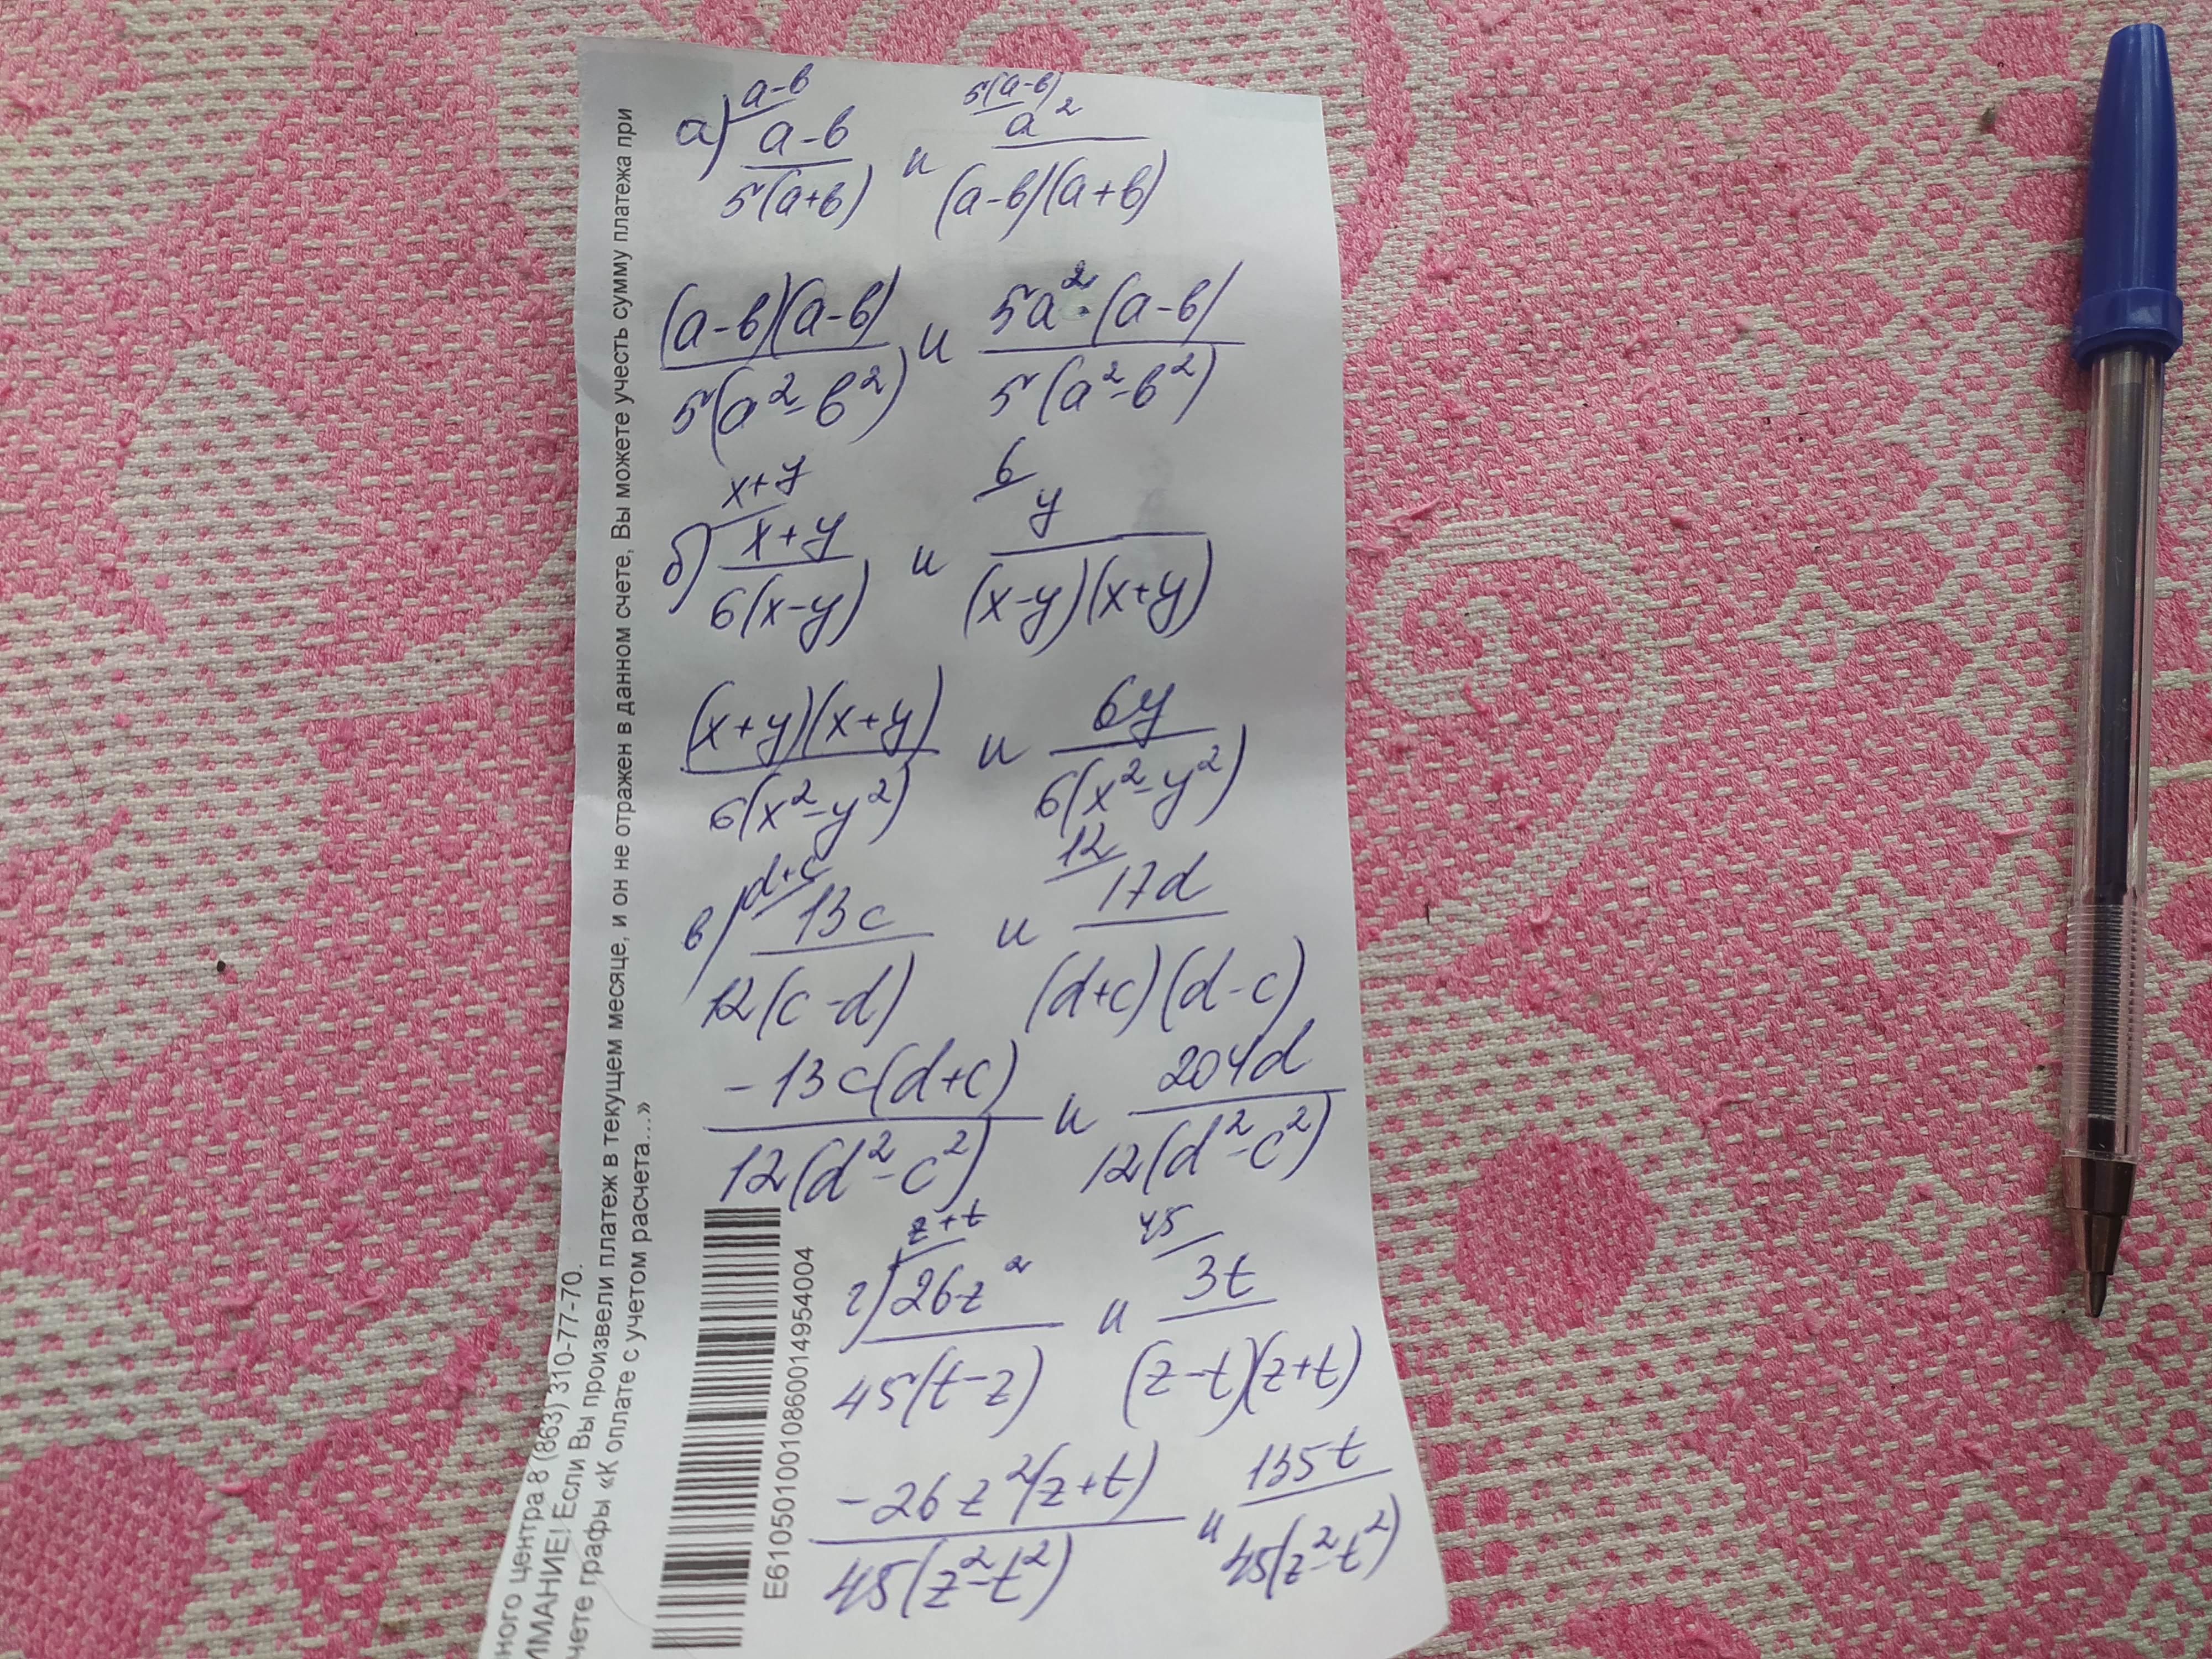 a-в 5(a-в)
а) a-в/5(a+в) и a²/(a-в)(a+в)
(a-в)(a-в)/5(a²-в²) и 5a²·(a-в)/5(a²-в²)
x+y 6
б) x+y/6(x-y) и y/(x-y)(x+y)
(x+y)(x+y)/6(x²-y²) и 6y/6(x²-y²)
d+c 12
в) 13c/12(c-d) и 17d/(d+c)(d-c)
-13c(d+c)/12(d²-c²) и 204d/12(d²-c²)
z+t 45
г) 26z²/45(t-z) и 3t/(z-t)(z+t)
-26z²(z+t)/45(z²-t²) и 135t/45(z²-t²)
ного центра 8 (863) 310-77-70.
ИМАНИЕ! Если Вы произвели платеж в текущем месяце, и он не отражен в данном счете, Вы можете учесть сумму платежа при
чете графы «К оплате с учетом расчета...»
E6105010010860014954004